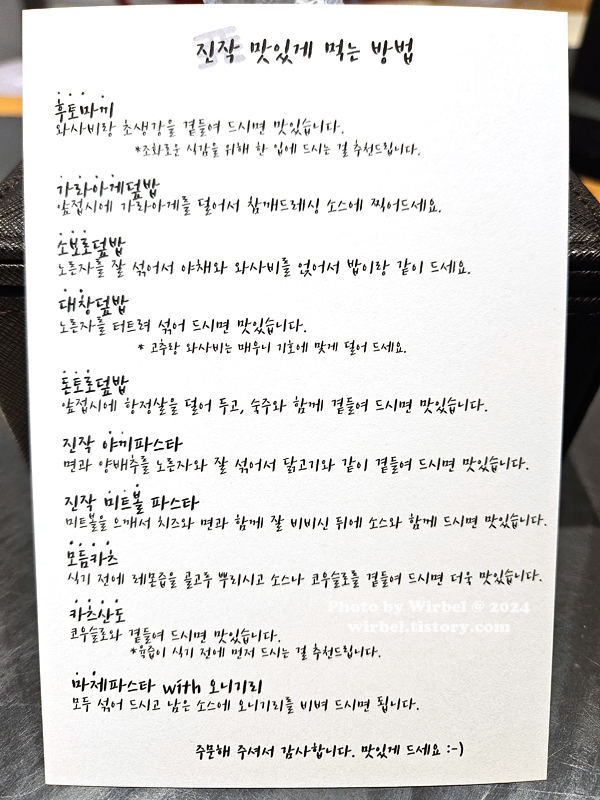 진작 맛있게 먹는 방법
후토마끼
와사비랑 초생강을 곁들여 드시면 맛있습니다.
*조화로운 식감을 위해 한 입에 드시는 걸 추천드립니다.
가라아게덮밥
앞접시에 가라아게를 덜어서 참깨드레싱 소스에 찍어드세요.
소보로덮밥
노른자를 잘 섞어서 야채와 와사비를 얹어서 밥이랑 같이 드세요.
대창덮밥
노른자를 터트려 섞어 드시면 맛있습니다.
* 고추랑 와사비는 매우니 기호에 맞게 덜어 드세요.
돈토로덮밥
앞접시에 항정살을 덜어 두고, 숙주와 함께 곁들여 드시면 맛있습니다.
진작 야끼파스타
면과 양배추를 노른자와 잘 섞어서 닭고기와 같이 곁들여 드시면 맛있습니다.
진작 미트볼 파스타
미트볼을 으깨서 치즈와 면과 함께 잘 비비신 뒤에 소스와 함께 드시면 맛있습니다.
모듬카츠
식기 전에 레몬즙을 골고루 뿌리시고 소스나 코우슬로를 곁들여 드시면 더욱 맛있습니다.
Photo by Wirbel @ 2024
wirbel.tistory.com
카츠산도
코우슬로와 곁들여 드시면 맛있습니다.
*육즙이 식기 전에 먼저 드시는 걸 추천드립니다.
마제파스타 with 오니기리
모두 섞어 드시고 남은 소스에 오니기리를 비벼 드시면 됩니다.
주문해 주셔서 감사합니다. 맛있게 드세요 :-)